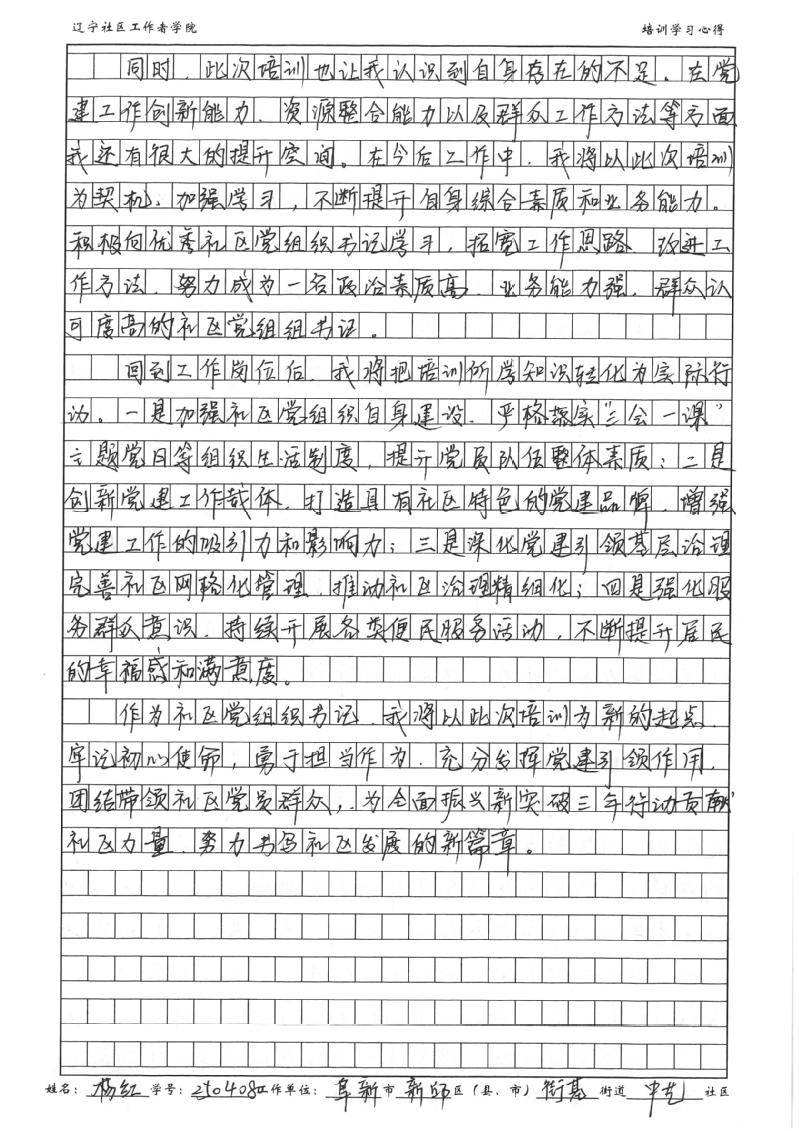 辽宁社区工作者学院 培训学习心得
同时，此次培训也让我认识到自身存在的不足。在党
建工作创新能力、资源整合能力以及群众工作方法等方面
我还有很大的提升空间。在今后工作中，我将以此次培训
为契机，加强学习，不断提升自身综合素质和业务能力。
积极向优秀社区党组织书记学习，拓宽工作思路、改进工
作方法，努力成为一名政治素质高、业务能力强、群众认
可度高的社区党组组书记。
回到工作岗位后，我将把培训所学知识转化为实际行
动。一是加强社区党组织自身建设，严格落实“三会一课”
主题党日等组织生活制度，提升党员队伍整体素质；二是
创新党建工作载体，打造具有社区特色的党建品牌，增强
党建工作的吸引力和影响力；三是深化党建引领基层治理
完善社区网格化管理，推动社区治理精细化；四是强化服
务群众意识，持续开展各类便民服务活动，不断提升居民
的幸福感和满意度。
作为社区党组织书记，我将以此次培训为新的起点，
牢记初心使命，勇于担当作为，充分发挥党建引领作用，
团结带领社区党员群众，为全面振兴新突破三年行动贡献
社区力量，努力书写社区发展的新篇章。
姓名：杨红 学号：250408 工作单位：阜新市 新邱区（县、市） 街基 街道 社区